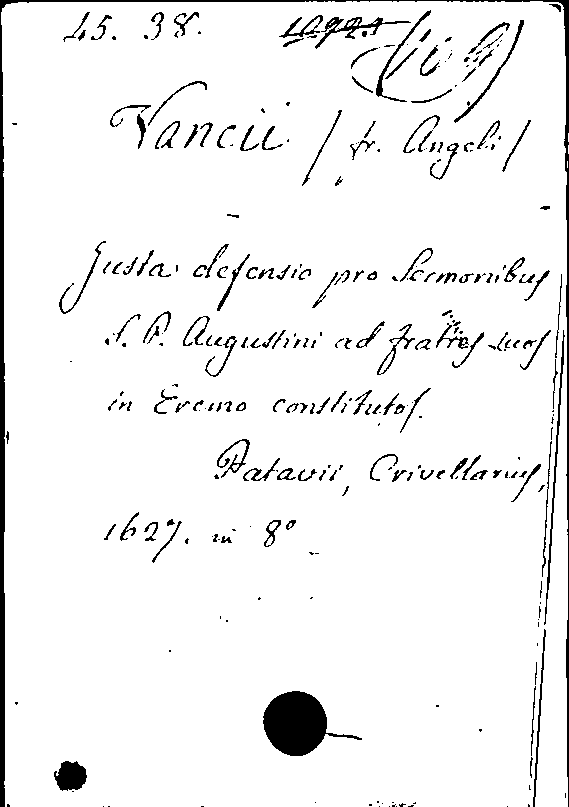 45. 38.
Vancii / fr. Angeli /
Justa defensio pro Sermonibus
S. P. Augustini ad fratres suos
in Eremo constitutos.
Patavii, Crivellarius,
1627. in 8º